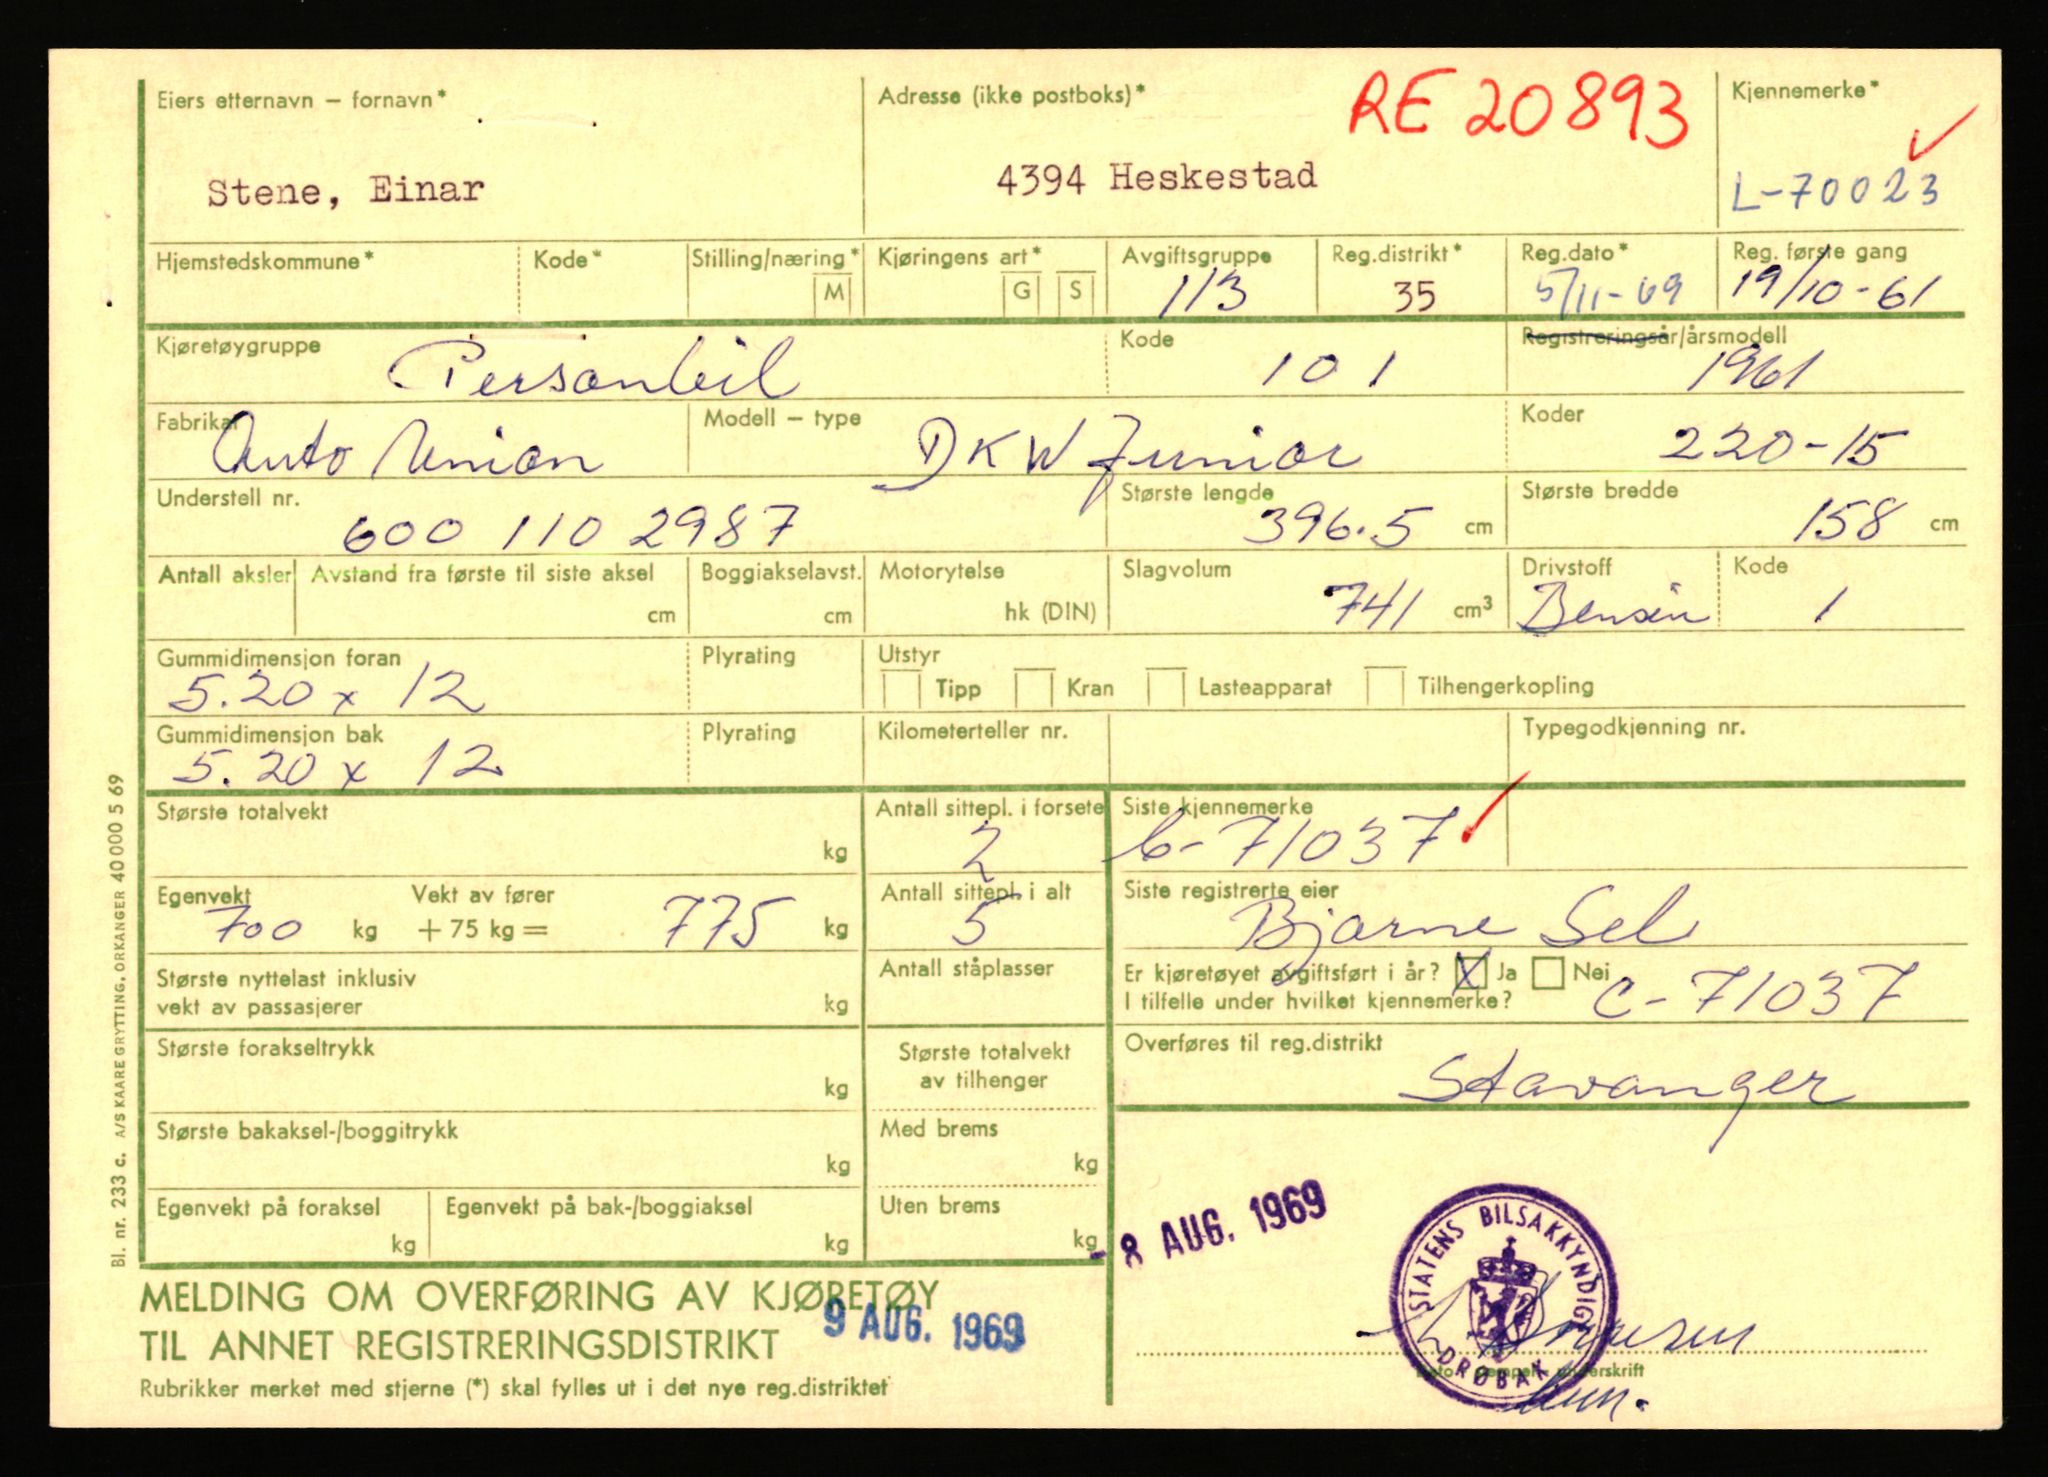 Eiers etternavn – fornavn*
Stene, Einar
Adresse (ikke postboks)*
RE 20893
4394 Heskestad
Kjennemerke*
L-70023
Hjemstedskommune*
Kode*
Stilling/næring*
M
Kjøringens art*
G S
Avgiftsgruppe
113
Reg.distrikt*
35
Reg.dato*
5/11-69
Reg. første gang
19/10-61
Kjøretøygruppe
Personbil
Kode
101
Registreringsår/årsmodell
1961
Fabrikat
Auto Union
Modell – type
DKW Junior
Koder
220-15
Understell nr.
600 110 2987
Største lengde
396.5 cm
Største bredde
158 cm
Antall aksler
Avstand fra første til siste aksel
cm
Boggiakselavst.
cm
Motorytelse
hk (DIN)
Slagvolum
741 cm³
Drivstoff
Bensin
Kode
1
Gummidimensjon foran
5.20 x 12
Plyrating
Utstyr
Tipp Kran Lasteapparat Tilhengerkopling
Gummidimensjon bak
5.20 x 12
Plyrating
Kilometerteller nr.
Typegodkjenning nr.
Største totalvekt
kg
Antall sittepl. i forsete
2
Siste kjennemerke
C-71037
Egenvekt
700 kg
Vekt av fører
+ 75 kg =
775 kg
Antall sittepl. i alt
5
Siste registrerte eier
Bjarne Sel
Største nyttelast inklusiv
vekt av passasjerer
kg
Antall ståplasser
Er kjøretøyet avgiftsført i år? X Ja Nei
I tilfelle under hvilket kjennemerke?
C-71037
Største forakseltrykk
kg
Største totalvekt
av tilhenger
Overføres til reg.distrikt
Stavanger
Største bakaksel-/boggitrykk
kg
Med brems
kg
Egenvekt på foraksel
kg
Egenvekt på bak-/boggiaksel
kg
Uten brems
kg
- 8 AUG. 1969
STATENS BILSAKKYNDIGE
DRØBAK
MELDING OM OVERFØRING AV KJØRETØY
TIL ANNET REGISTRERINGSDISTRIKT
9 AUG. 1969
Rubrikker merket med stjerne (*) skal fylles ut i det nye reg.distriktet
Dato - stempel - underskrift
Bl. nr. 233 c. A/S KAARE GRYTTING, ORKANGER 40 000 5 69